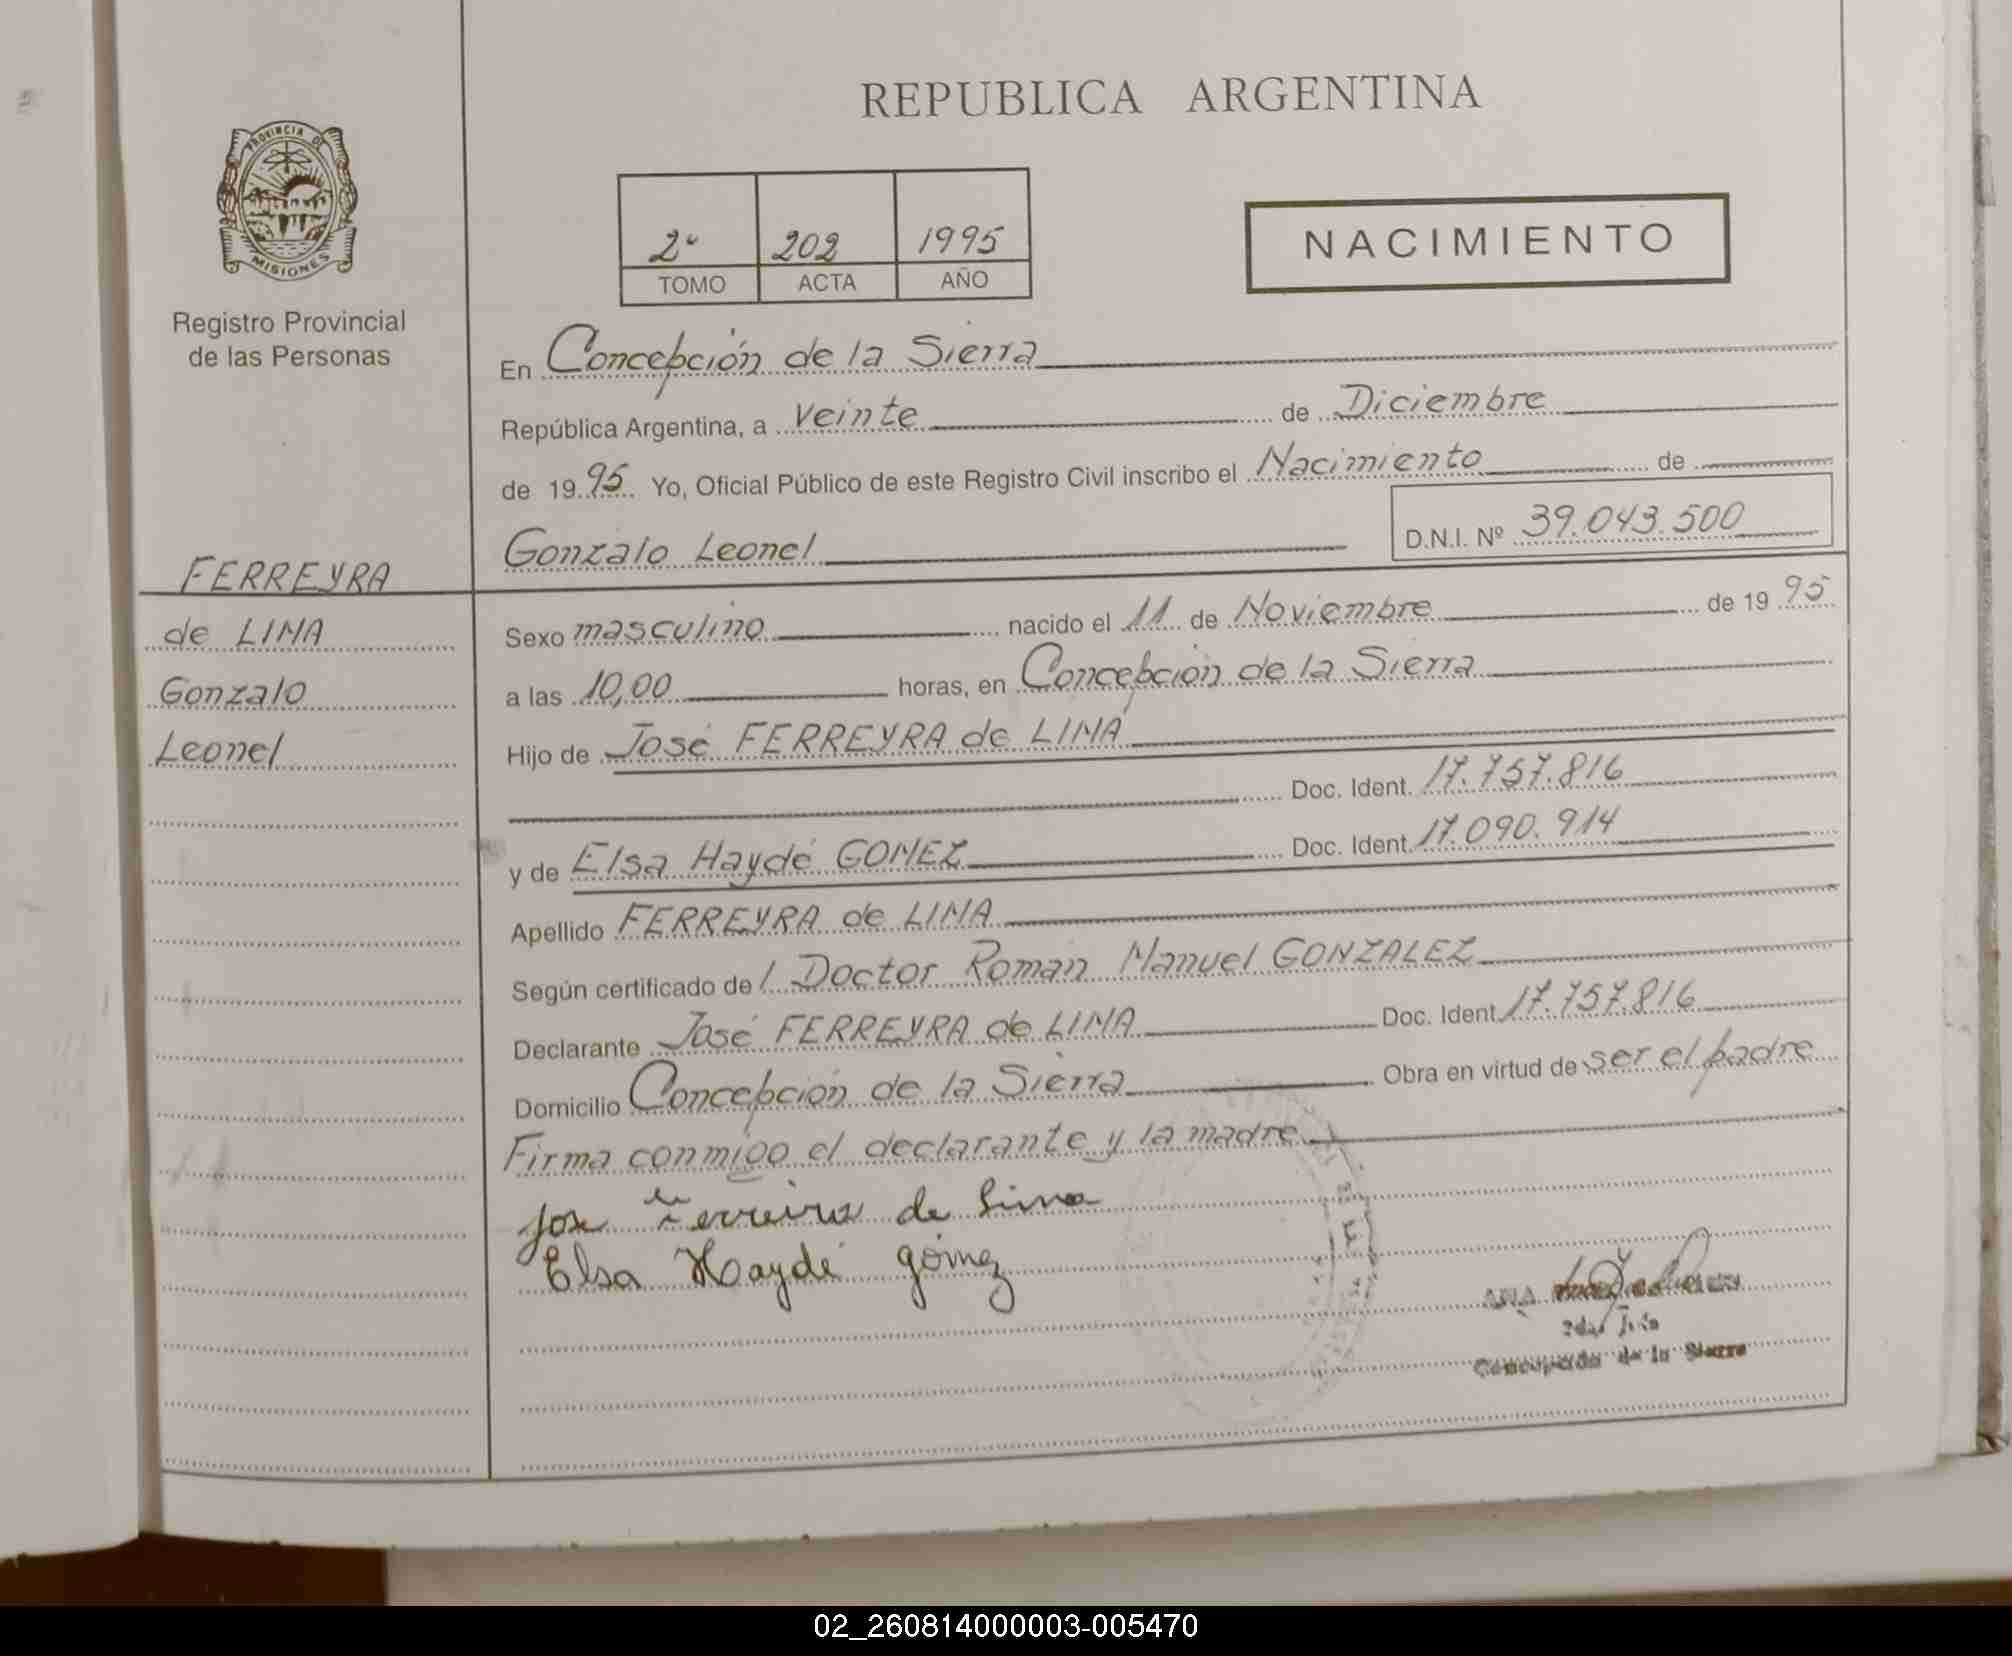 REPUBLICA ARGENTINA
PROVINCIA DE
MISIONES
Registro Provincial
de las Personas
2º 202 1995
TOMO ACTA AÑO
NACIMIENTO
En Concepción de la Sierra
República Argentina, a veinte de Diciembre
de 19 95 Yo, Oficial Público de este Registro Civil inscribo el Nacimiento de
Gonzalo Leonel D.N.I. Nº 39.043.500
FERREYRA
de LIMA
Gonzalo
Leonel
Sexo masculino nacido el 11 de Noviembre de 19 95
a las 10,00 horas, en Concepción de la Sierra
Hijo de José FERREYRA de LIMA
Doc. Ident. 17.757.816
y de Elsa Haydé GOMEZ Doc. Ident. 17.090.914
Apellido FERREYRA de LIMA
Según certificado del Doctor Román Manuel GONZALEZ
Declarante José FERREYRA de LIMA Doc. Ident. 17.757.816
Domicilio Concepción de la Sierra Obra en virtud de ser el padre
Firma conmigo el declarante y la madre
Jose Ferreira de Lima
Elsa Haydé gómez
ANA
Concepción de la Sierra
02_260814000003-005470